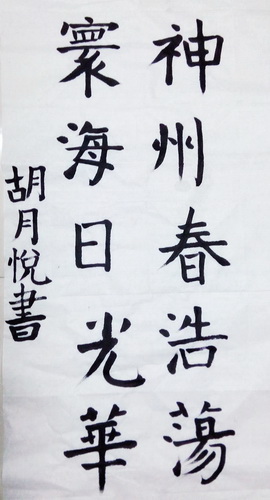 神州春浩蕩
寰海日光華
胡月悅書